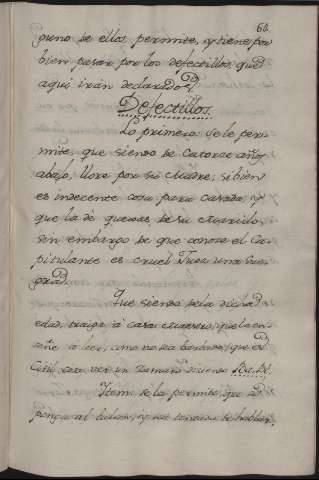 62.
guno de ellos, permite, y tiene por
bien pasar por los defectillos, qued
aqui irán declarados.
Defectillos.
Lo primero se le per-
mite, que siendo de catorce años
abajo, llore por su Madre, si bien
es indecente cosa para casada, y
que la de quexas de su marido,
sin embargo de que conoce el Ca-
pitulante es cruel Juez una Sue-
gra.
Que siendo de la dicha
edad, traiga á casa Maestro, que la en-
señe à leer, como no sea barbado, que es
ver un tamaño diciendo Ba, be.
Item: se la permite, que
ponga al balcon, y sea tentada de hablar,